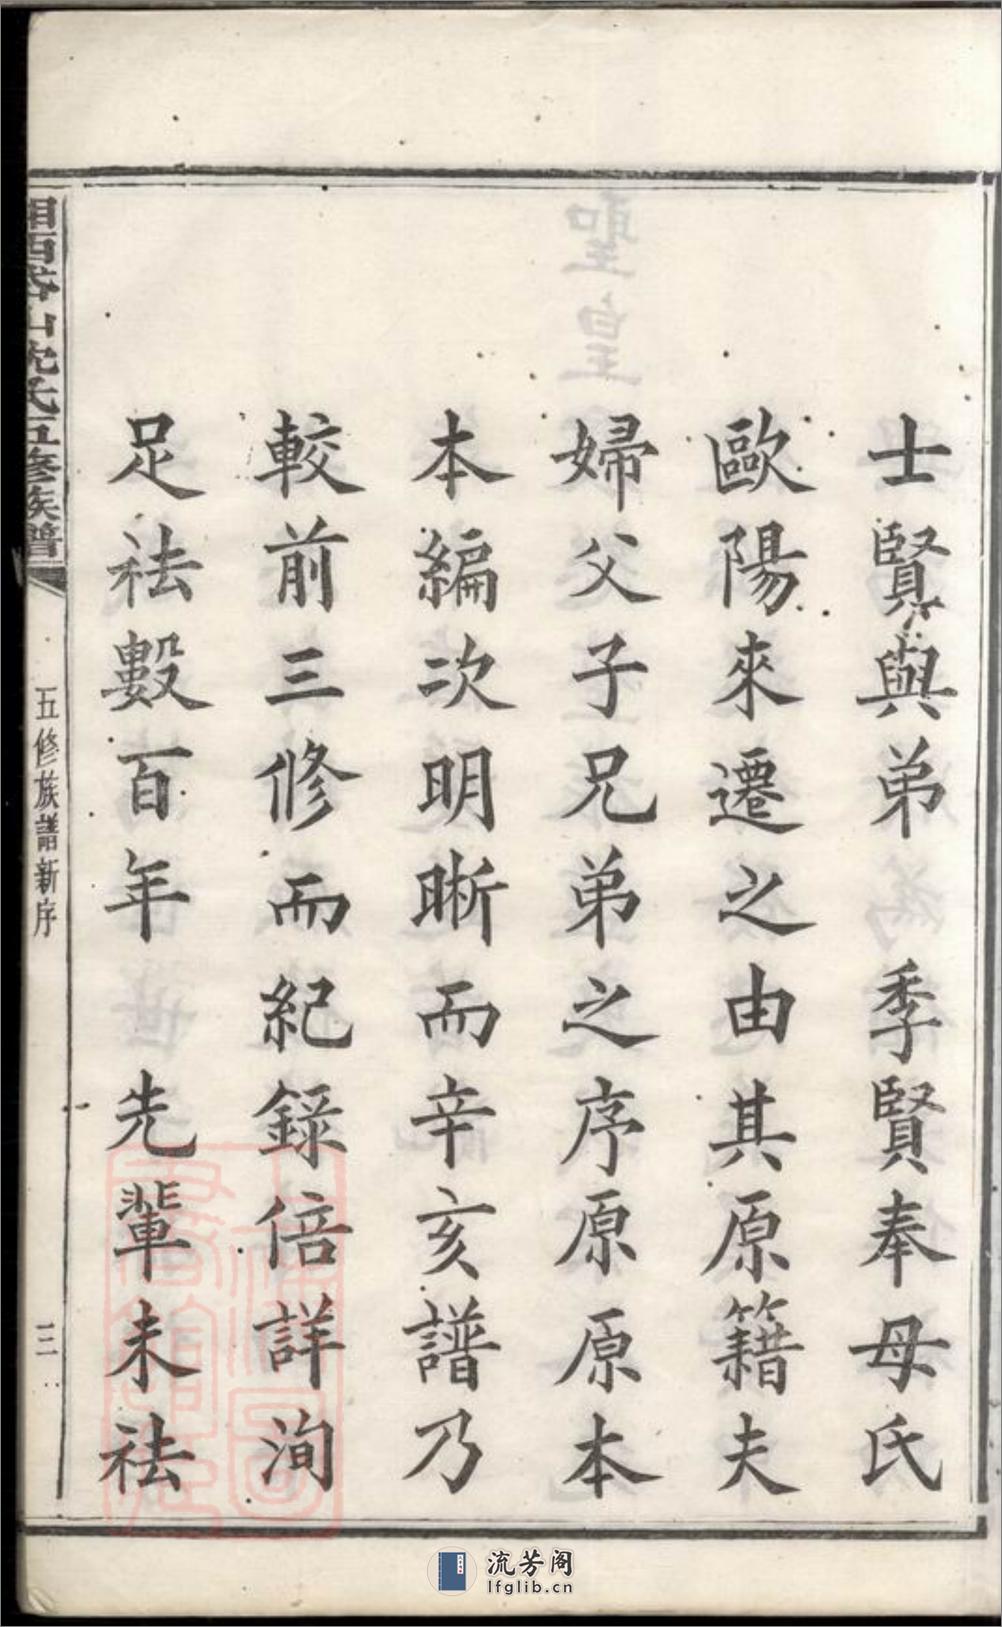 士賢與弟 季賢奉母氏
歐陽來遷之由其原籍夫
婦父子兄弟之序原原本
本編次明晰而辛亥譜乃
較前三修而紀錄倍詳洵
足祛數百年 先輩未祛
山沈氏五修族譜
五修族譜新序
三
流芳阁
lfglib.cn